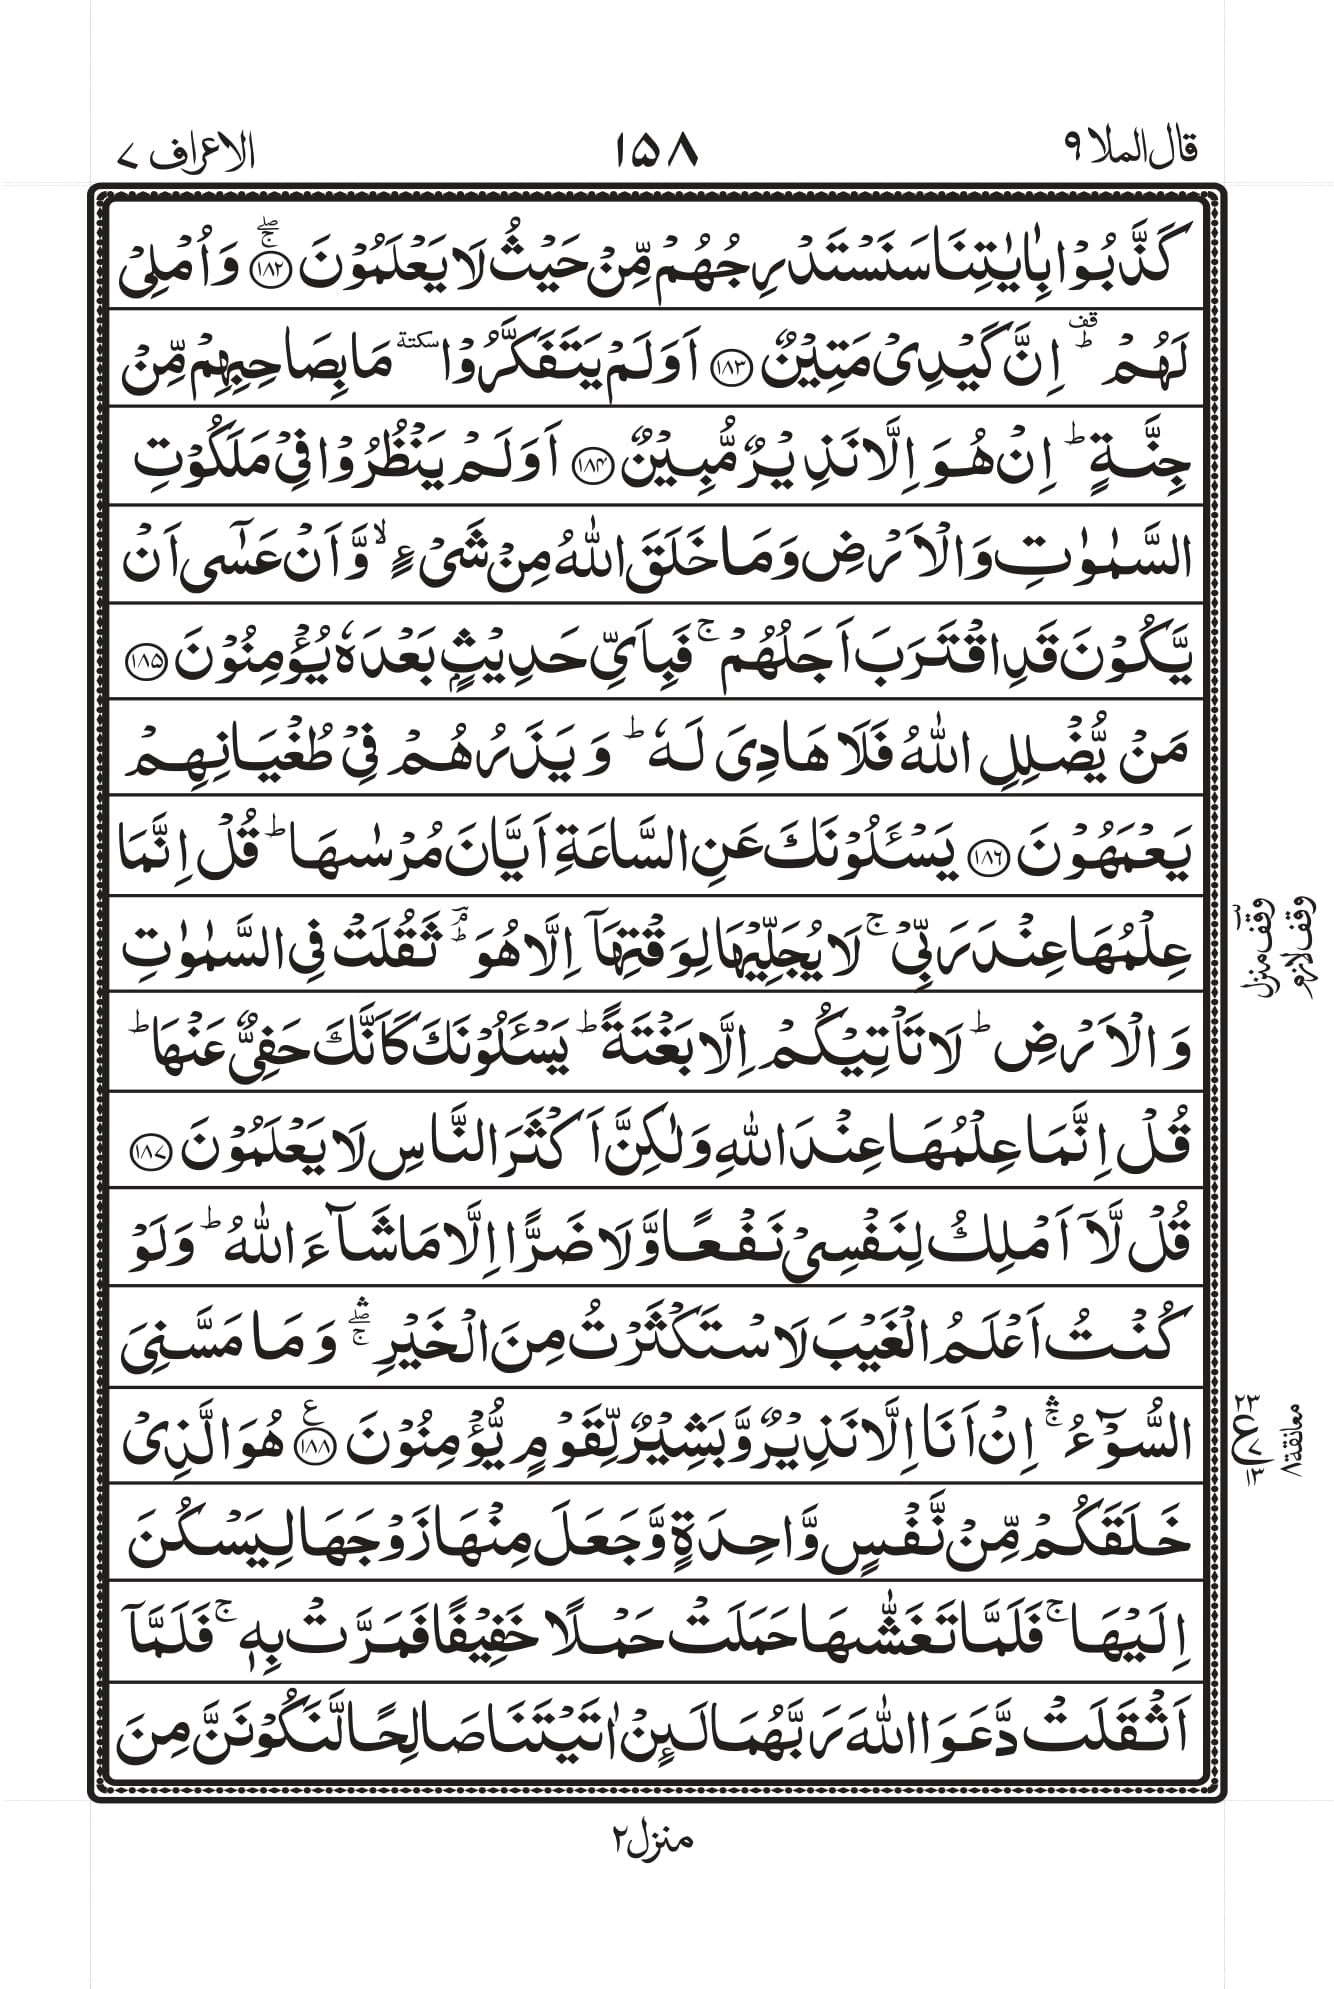 قال الملا ٩
١٥٨
الاعراف ٧
كَذَّبُوْا بِاٰيٰتِنَا سَنَسْتَدْرِجُهُمْ مِّنْ حَيْثُ لَا يَعْلَمُوْنَ ۚۖ ١٨٢ وَاُمْلِيْ
لَهُمْ ؕ قف اِنَّ كَيْدِيْ مَتِيْنٌ ١٨٣ اَوَلَمْ يَتَفَكَّرُوْا سكتة مَا بِصَاحِبِهِمْ مِّنْ
جِنَّةٍ ؕ اِنْ هُوَ اِلَّا نَذِيْرٌ مُّبِيْنٌ ١٨٤ اَوَلَمْ يَنْظُرُوْا فِيْ مَلَكُوْتِ
السَّمٰوٰتِ وَالْاَرْضِ وَمَا خَلَقَ اللّٰهُ مِنْ شَيْءٍ ۙ وَّاَنْ عَسٰۤى اَنْ
يَّكُوْنَ قَدِ اقْتَرَبَ اَجَلُهُمْ ۚ فَبِاَيِّ حَدِيْثٍۭ بَعْدَهٗ يُؤْمِنُوْنَ ١٨٥
مَنْ يُّضْلِلِ اللّٰهُ فَلَا هَادِيَ لَهٗ ؕ وَيَذَرُهُمْ فِيْ طُغْيَانِهِمْ
يَعْمَهُوْنَ ١٨٦ يَسْـَٔلُوْنَكَ عَنِ السَّاعَةِ اَيَّانَ مُرْسٰىهَا ؕ قُلْ اِنَّمَا
عِلْمُهَا عِنْدَ رَبِّيْ ۚ لَا يُجَلِّيْهَا لِوَقْتِهَاۤ اِلَّا هُوَ ؕۘ ثَقُلَتْ فِي السَّمٰوٰتِ
وقف منزل
وقف لازم
وَالْاَرْضِ ؕ لَا تَاْتِيْكُمْ اِلَّا بَغْتَةً ؕ يَسْـَٔلُوْنَكَ كَاَنَّكَ حَفِيٌّ عَنْهَا ؕ
قُلْ اِنَّمَا عِلْمُهَا عِنْدَ اللّٰهِ وَلٰكِنَّ اَكْثَرَ النَّاسِ لَا يَعْلَمُوْنَ ١٨٧
قُلْ لَّاۤ اَمْلِكُ لِنَفْسِيْ نَفْعًا وَّلَا ضَرًّا اِلَّا مَا شَآءَ اللّٰهُ ؕ وَلَوْ
كُنْتُ اَعْلَمُ الْغَيْبَ لَاسْتَكْثَرْتُ مِنَ الْخَيْرِ ۛۚۖ وَمَا مَسَّنِيَ
السُّوْٓءُ ۛۚ اِنْ اَنَا اِلَّا نَذِيْرٌ وَّبَشِيْرٌ لِّقَوْمٍ يُّؤْمِنُوْنَ ع ١٨٨ هُوَ الَّذِيْ
٢٣ ع ٧ ١٣
معانقة ٨
خَلَقَكُمْ مِّنْ نَّفْسٍ وَّاحِدَةٍ وَّجَعَلَ مِنْهَا زَوْجَهَا لِيَسْكُنَ
اِلَيْهَا ۚ فَلَمَّا تَغَشّٰىهَا حَمَلَتْ حَمْلًا خَفِيْفًا فَمَرَّتْ بِهٖ ۚ فَلَمَّاۤ
اَثْقَلَتْ دَّعَوَا اللّٰهَ رَبَّهُمَا لَىِٕنْ اٰتَيْتَنَا صَالِحًا لَّنَكُوْنَنَّ مِنَ
منزل ٢